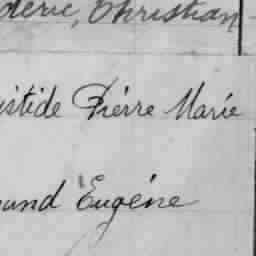 déric, Christian
istide Pierre Marie
mund Eugène